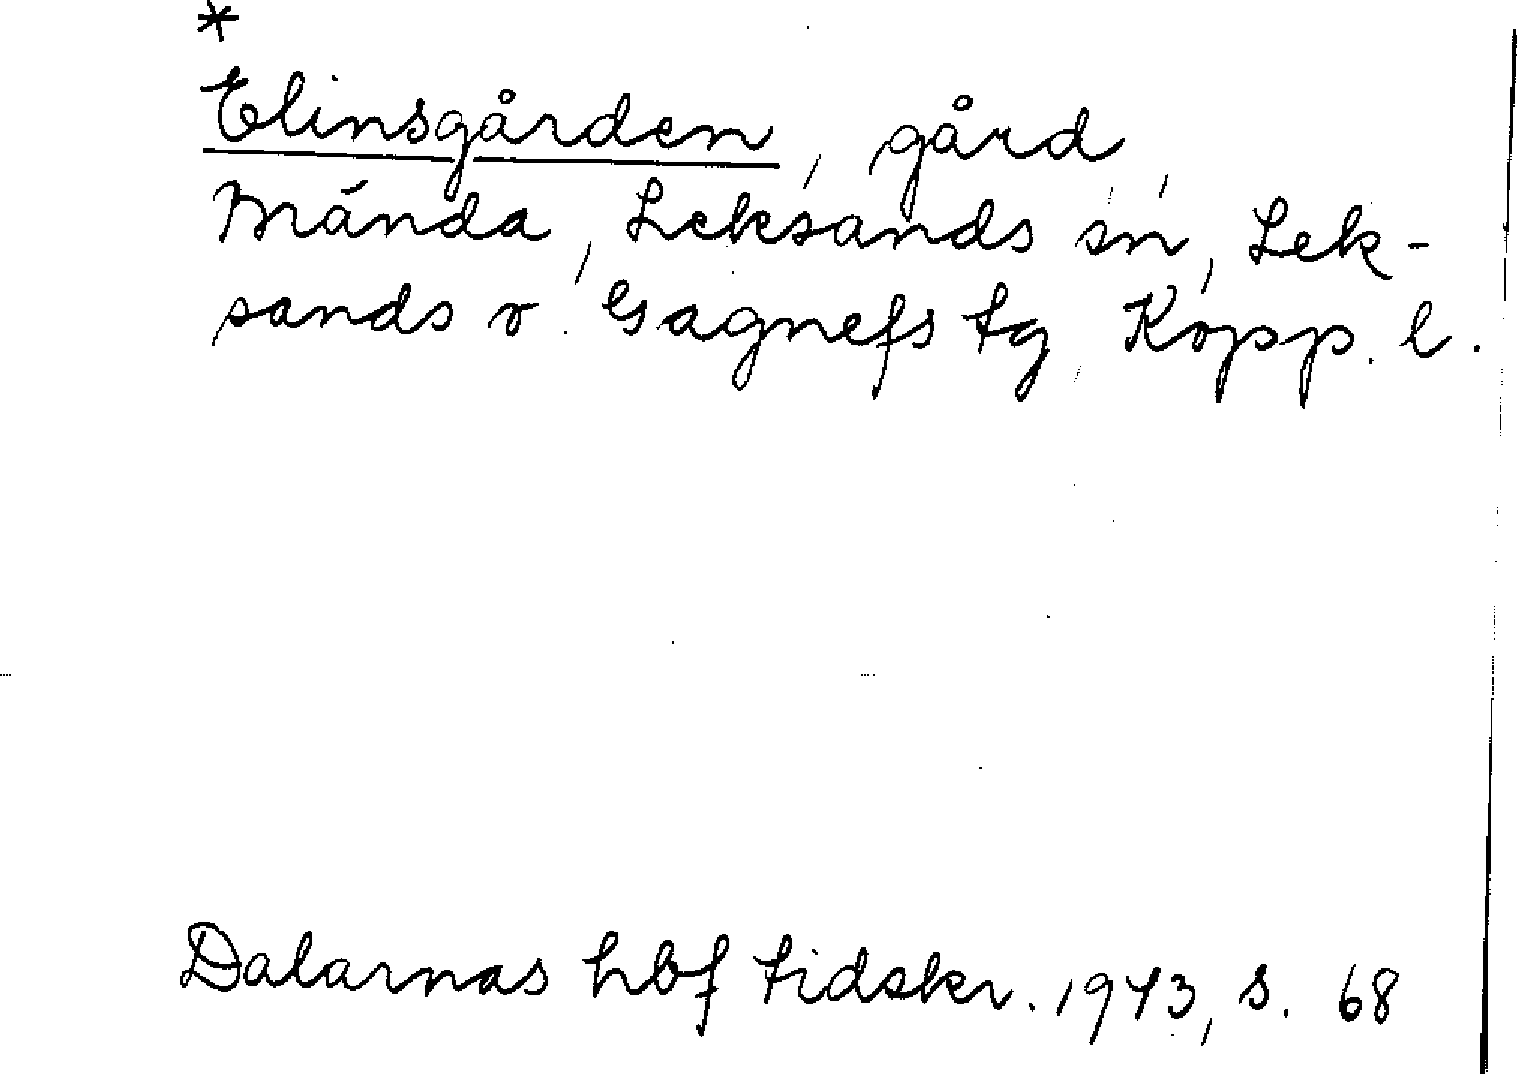 *
Elinsgården, gård,
Mända, Leksands sn, Lek-
sands o. Gagnefs tg, Kopp. l.
Dalarnas hbf tidskr. 1943, s. 68